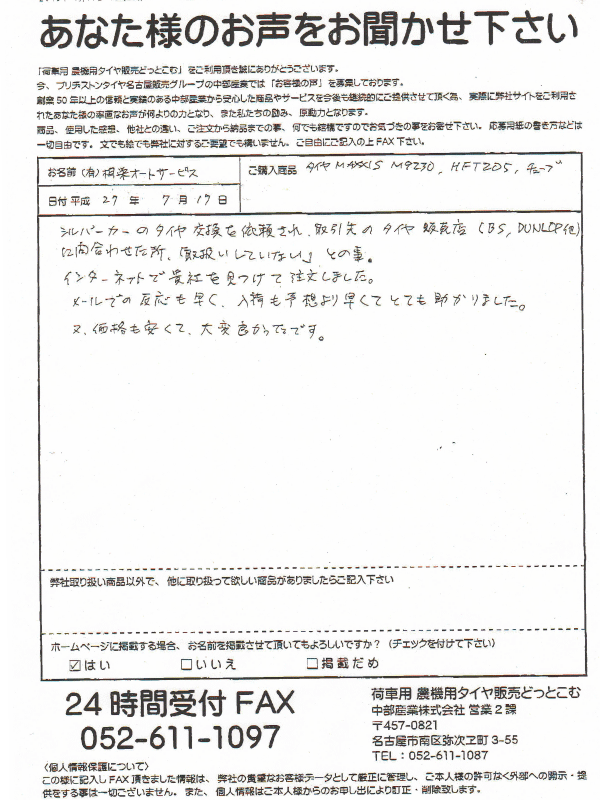 あなた様のお声をお聞かせ下さい
「荷車用 農機用タイヤ販売どっとこむ」をご利用頂き誠にありがとうございます。
今、ブリヂストンタイヤ名古屋販売グループの中部産業では「お客様の声」を募集しております。
創業50年以上の信頼と実績のある中部産業から安心した商品やサービスを今後も継続的にご提供させて頂く為、実際に弊社サイトをご利用さ
れたあなた様の率直なお声が何よりの力となり、また私たちの励み、原動力となります。
商品、使用した感想、他社との違い、ご注文から納品までの事、何でも結構ですのでお気づきの事をお寄せ下さい。応募用紙の書き方などは
一切自由です。文でも絵でも弊社に対するご要望でも構いません、ご自由にご記入の上FAX下さい。
お名前 (有)相楽オートサービス
ご購入商品 タイヤ MAXXIS M9230, HFT205, チューブ
日付 平成 27 年 7 月 17 日
シルバーカーのタイヤ交換を依頼され、取引先のタイヤ販売店 (BS, DUNLOP他)
に問合わせた所、「取扱いしていない」との事。
インターネットで貴社を見つけて注文しました。
メールでの反応も早く、入荷も予想より早くてとても助かりました。
又、価格も安くて、大変良かったです。
弊社取り扱い商品以外で、他に取り扱って欲しい商品がありましたらご記入下さい
ホームページに掲載する場合、お名前を掲載させて頂いてもよろしいですか？（チェックを付けて下さい）
☑はい □いいえ □掲載だめ
24時間受付 FAX
052-611-1097
荷車用 農機用タイヤ販売どっとこむ
中部産業株式会社 営業2課
〒457-0821
名古屋市南区弥次ヱ町3-55
TEL：052-611-1087
〈個人情報保護について〉
この様に記入しFAX頂きました情報は、弊社の貴重なお客様データとして厳正に管理し、ご本人様の許可なく外部への開示・提
供をする事は一切ございません。また、個人情報はご本人様からのお申し出により訂正・削除致します。